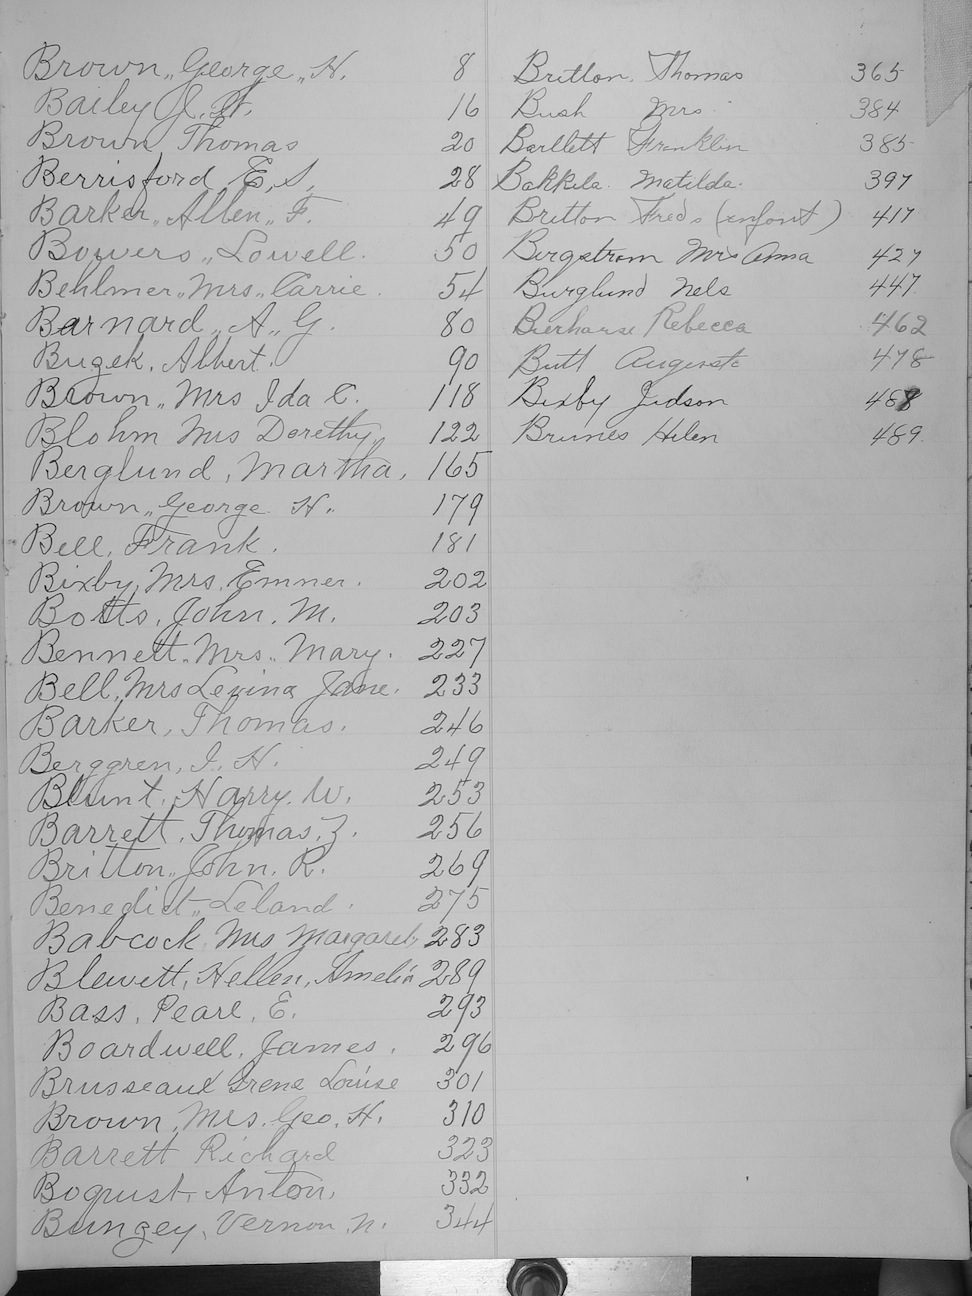 Brown,, George,, H. 8
Bailey J. H. 16
Brown, Thomas 20
Berrisford, E, S, 28
Barker,, Allen,, F. 49
Bowers,, Lowell. 50
Behlmer,, Mrs,, Carrie. 54
Barnard,, A,, G. 80
Buzek, Albert. 90
Brown,, Mrs Ida C. 118
Blohm Mrs Dorethy, 122
Berglund, Martha, 165
Brown,, George H. 179
Bell, Frank. 181
Bixby, Mrs, Emner. 202
Botts, John, M. 203
Bennett,, Mrs,, Mary. 227
Bell, Mrs Levina Jane. 233
Barker, Thomas. 246
Berggren, I. H. 249
Blunt, Harry. W. 253
Barrett, Thomas, Z. 256
Britton,, John. R. 269
Benedict,, Leland. 275
Babcock Mrs Margaret, 283
Blewett, Hellen, Amelia 289
Bass, Pearl, E. 293
Boardwell, James. 296
Brusseaud Irene Louise 301
Brown, Mrs. Geo. H. 310
Barrett Richard 323
Bogust, Anton, 332
Bungey, Vernon, N. 344
Britton, Thomas 365
Bush Mrs 384
Bartlett Franklin 385
Bakkila. Matilda. 397
Britton Freds (infant) 417
Bergstrom Mrs Anna 427
Burglund Nels 447
Rebecca 462
Butt August 478
Bixby Judson 488
Brunes Helen 489